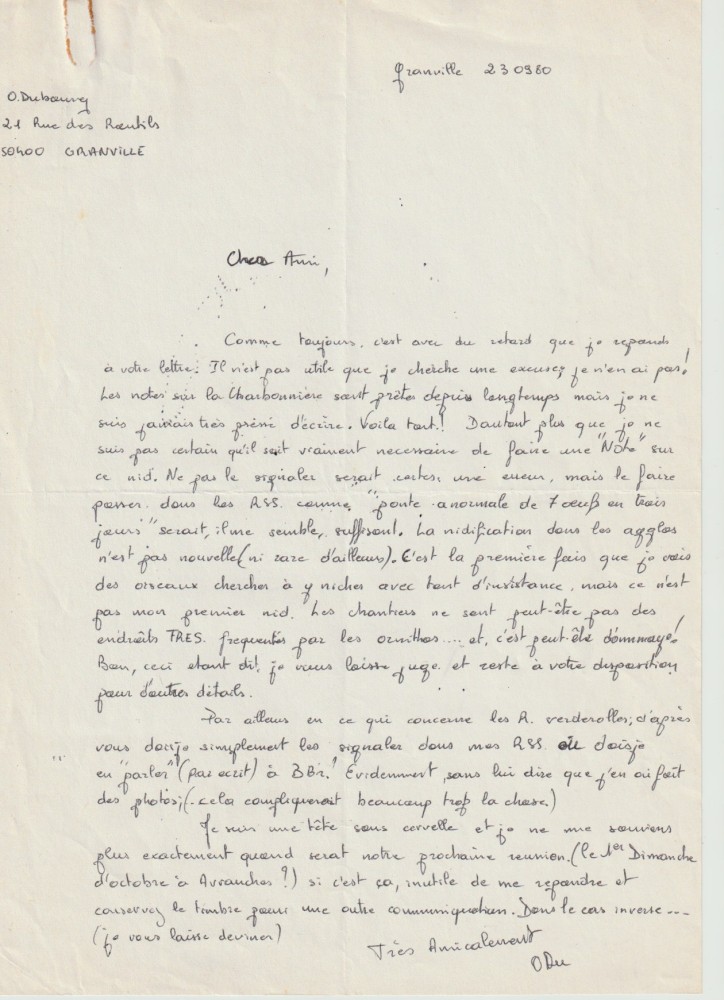 Granville 23 09 80
O. Dubourg
21 Rue des Routils
50400 GRANVILLE
Cher Ami,
Comme toujours, c'est avec du retard que je reponds
à votre lettre. Il n'est pas utile que je cherche une excuse, je n'en ai pas!
Les notes sur la Charbonnière sont prêtes depuis longtemps mais je ne
suis jamais très pressé d'écrire. Voila tout! Dautant plus que je ne
suis pas certain qu'il soit vraiment necessaire de faire une "Note" sur
ce nid. Ne pas le signaler serait, certes, une erreur, mais le faire
passer dans les RSS comme "ponte anormale de 7 oeufs en trois
jours" serait, il me semble, suffisant. La nidification dans les agglos
n'est pas nouvelle (ni rare d'ailleurs). C'est la première fois que je vois
des oiseaux chercher à y nicher avec tant d'insistance, mais ce n'est
pas mon premier nid. Les chantiers ne sont peut-être pas des
endroits TRES frequentés par les ornithos.... et, c'est peut-être dommage!
Bon, ceci etant dit, je vous laisse juge et reste à votre disposition
pour d'autres détails.
Par ailleurs en ce qui concerne les R. verderolles, d'après
vous dois je simplement les signaler dans mes RSS ou dois je
en "parler" (par ecrit) à BBr.? Evidemment, sans lui dire que j'en ai fait
des photos; (cela compliquerait beaucoup trop la chose.)
Je suis une tête sans cervelle et je ne me souviens
plus exactement quand serat notre prochaine reunion. (le 1er Dimanche
d'octobre à Avranches?) si c'est ça, inutile de me repondre et
conservez le timbre pour une autre communication. Dans le cas inverse ---
(je vous laisse deviner)
Très Amicalement
ODu